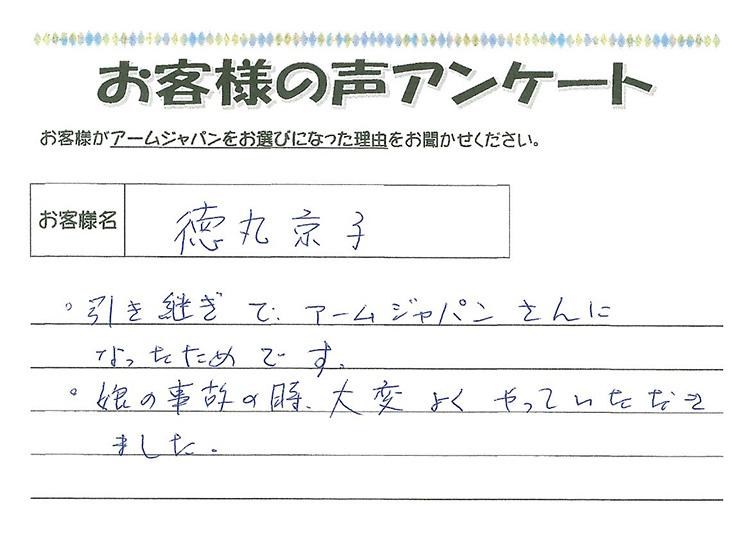 お客様の声アンケート
お客様がアームジャパンをお選びになった理由をお聞かせください。
お客様名
徳丸京子
。引き継ぎで、アームジャパンさんに
なったためです。
。娘の事故の時、大変よくやっていただき
ました。